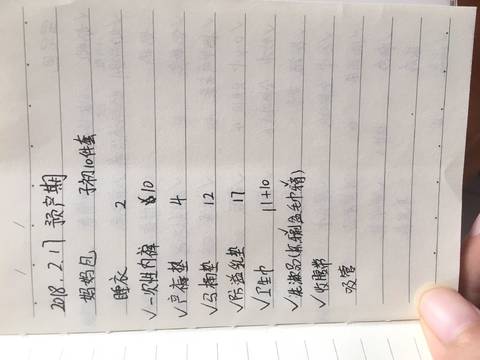 2018.2.17 预产期
妈妈包 子初10件套
睡衣 2
✓一次性内裤 10
✓产褥垫 4
✓马桶垫 12
✓防溢乳垫 17
✓卫生巾 11+10
✓洗漱品(牙刷盆毛巾梳)
✓收腹带
吸管